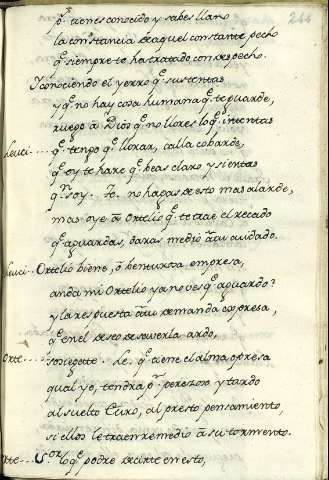 266
p.r tienes conocido y sabes llano
la constancia de aquel constante pecho
q.e siempre te ha tratado con despecho.
Y conociendo el yerro q.e sustentas
y q.e no hay cosa humana q.e te guarde,
ruego a Dios q.e no llores lo q.e intentas
Leuci.... q.e tengo q.e llorar, calla cobarde,
q.e oy te hare q.e beas claro y sientas
q.n soy. Fe. no hagas de esto mas alarde,
mas oye a Ortelio q.e te trae el recado
q.e aguardas, daras medio a tu cuidado.
Leuci.. Ortelio biene, ô benturosa empresa,
anda mi Ortelio ya no ves q.e aguardo?
y la respuesta a tu demanda expresa,
q.e en el deseo de saverla ardo,
Orte.... sosiegate. Le. q.e tiene el alma opresa
qual yo, tendra p.r perezoso y tardo
al suelto Euro, al presto pensamiento,
si ellos le traen remedio a su tormento.
Orte... S.or lo q.e podre decirte en esto,